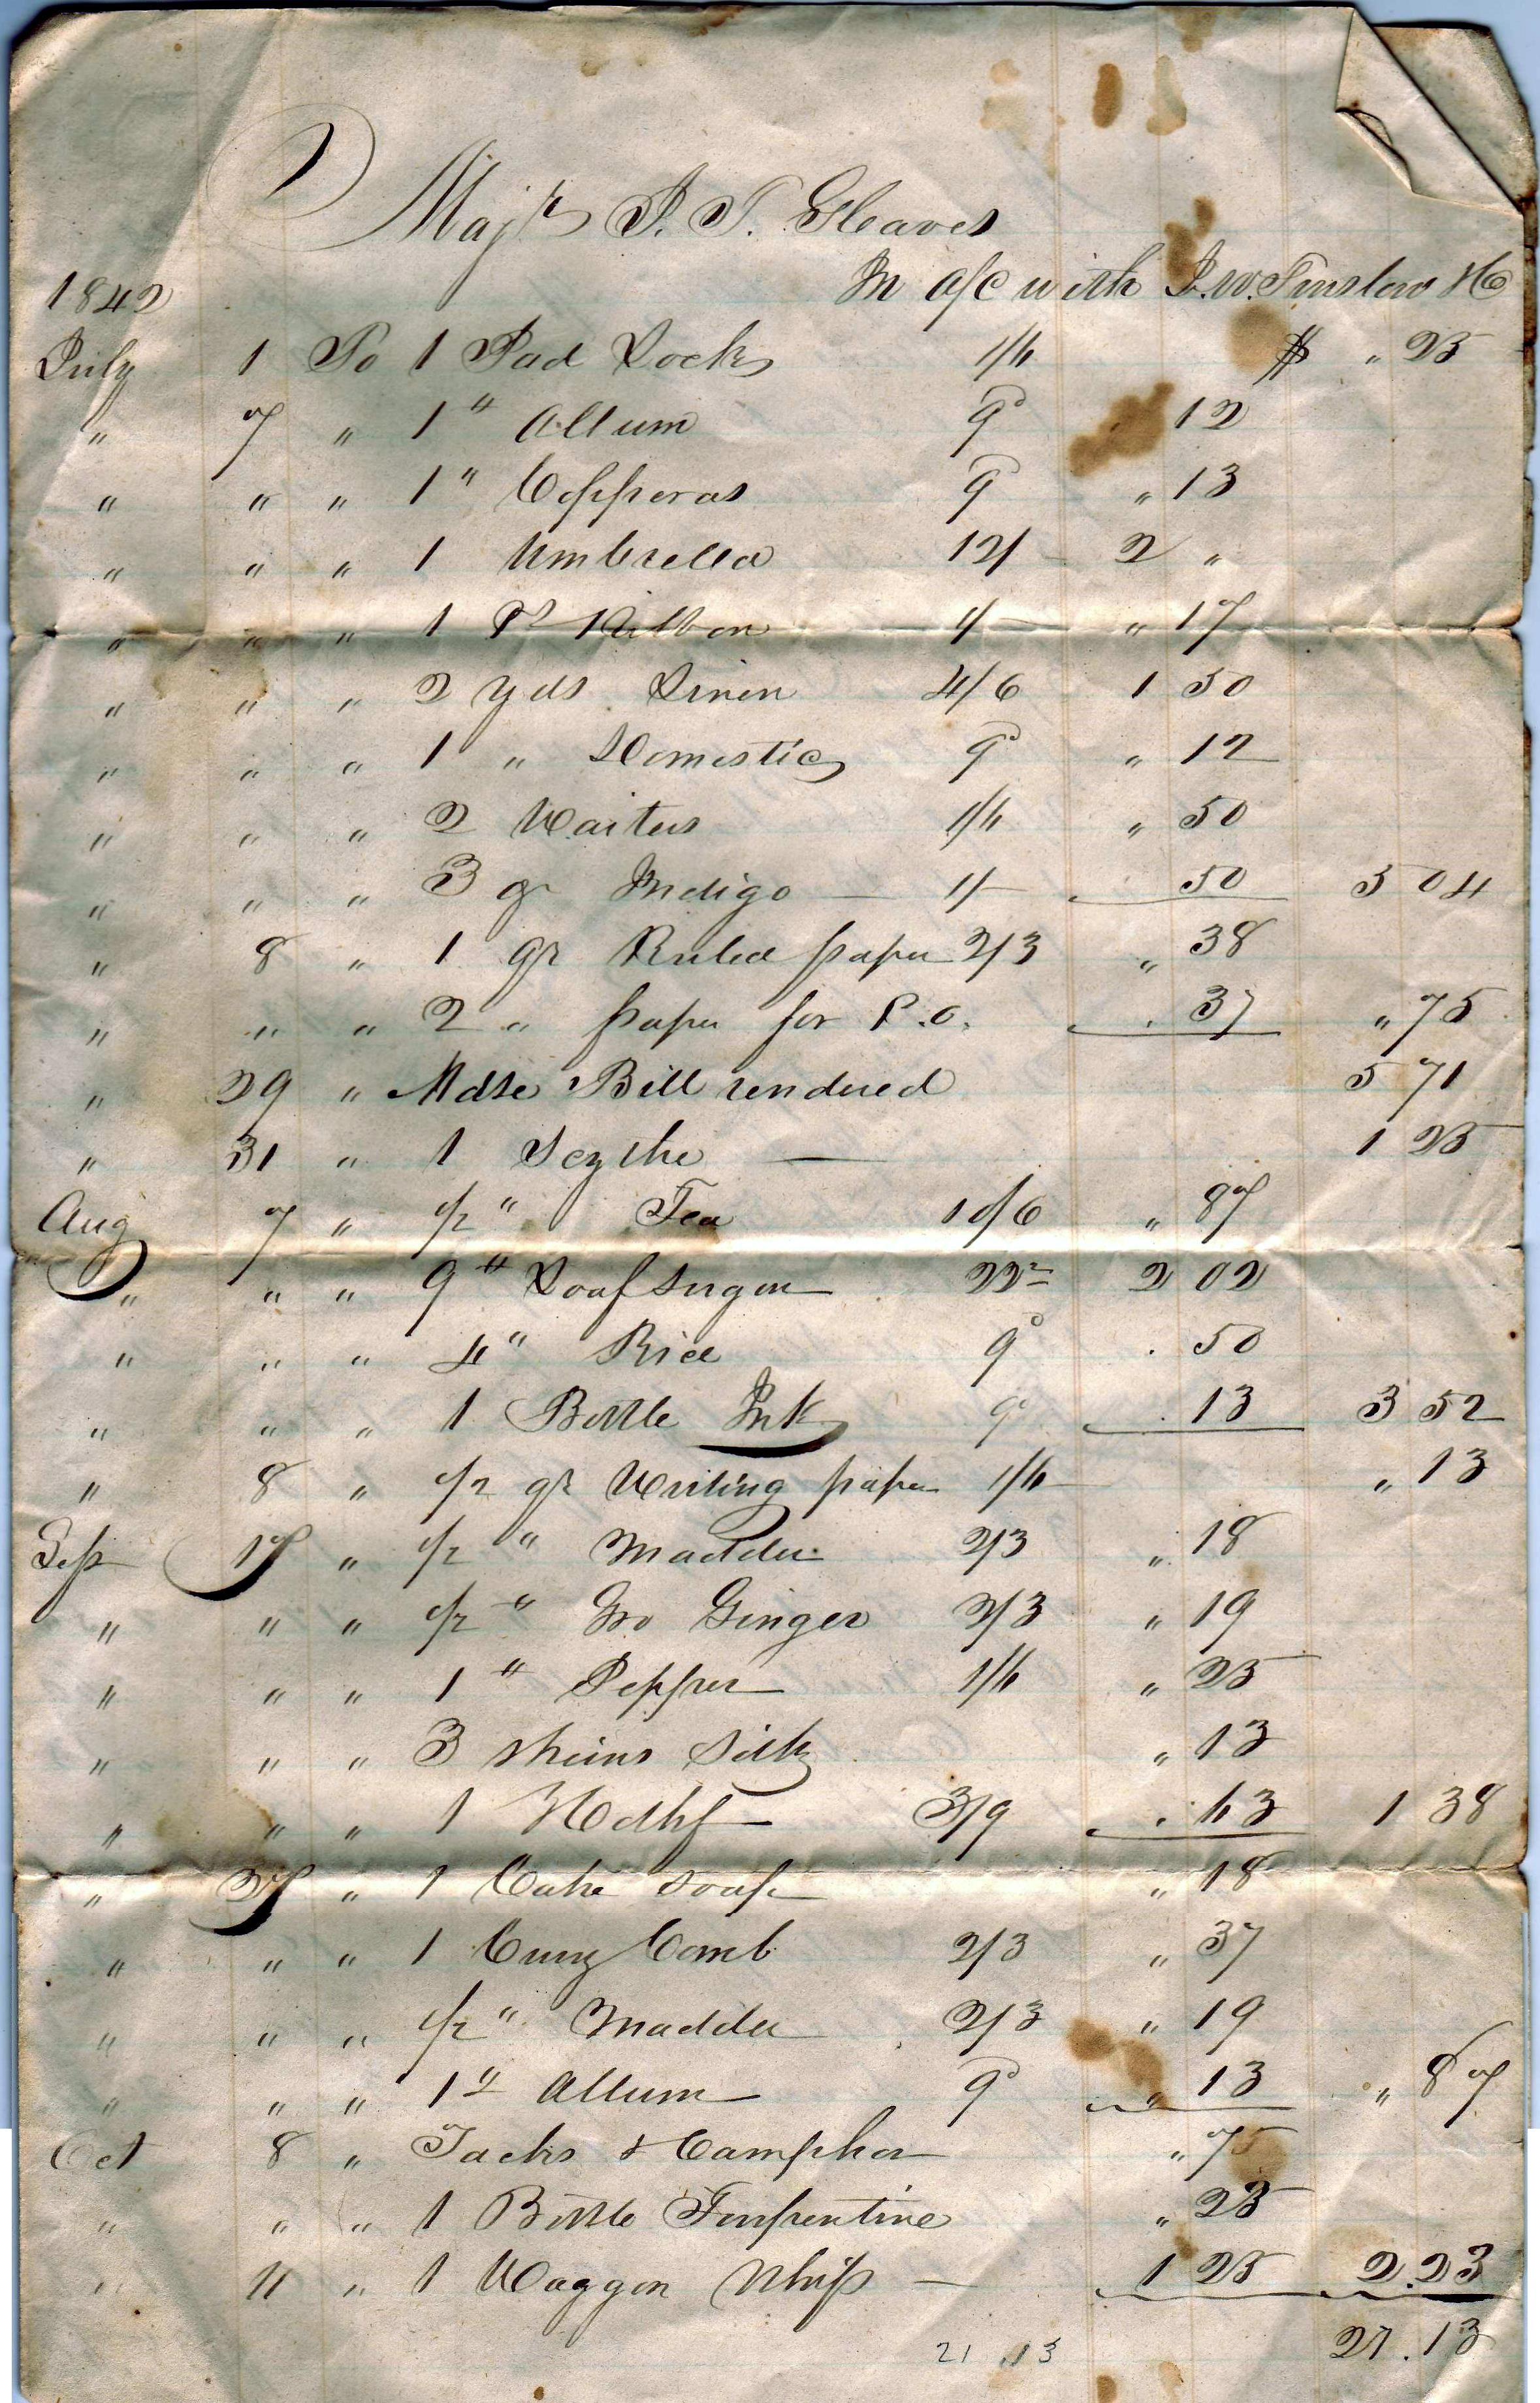 Majr J. T. Cleaves
In a/c with J. W. Tinslow & Co
1842
July 1 To 1 Pad Lock 1/6 $ " 25
" 7 " 1 # Allum 9d 12
" " " 1 " Copperas 9d " 13
" " " 1 Umbrella 12/ 2 "
" " " 1 Ps Ribbon 1/ " 17
" " " 2 yds Linen 4/6 1 50
" " " 1 " Domestic 9d " 12
" " " 2 Waiters 1/6 " 50
" " " 3 qr Indigo 1/ 50 5 04
" 8 " 1 qr Ruled paper 2/3 " 38
" " " 2 " paper for P.O. . 37 " 75
" 29 " Mdse Bill rendered 5 71
" 31 " 1 Scythe — 1 25
Aug 7 " 1/2 " Tea 10/6 " 87
" " " 9 # Loaf Sugar 22 2 02
" " " 4 " Rice 9d . 50
" " " 1 Bottle Ink 9d . 13 3 52
" 8 " 1/2 qr Writing paper 1/6 " 13
Sep 17 " 1/2 " Madder 2/3 " 18
" " " 1/2 " Gro Ginger 2/3 " 19
" " " 1 # Pepper 1/6 " 25
" " " " 3 skeins Silk " 13
" " " 1 Hdkf 3/9 . 63 1 38
" 27 " 1 Cake Soap " 18
" " " 1 Curry Comb 2/3 " 37
" " " 1/2 " Madder 2/3 " 19
" " " 1 # Allum 9d " 13 " 87
Oct 8 " Tacks & Camphor " 75
" " " 1 Bottle Turpentine " 23
" 11 " 1 Waggon Whip — 1 25 2.23
21 .13 21.13